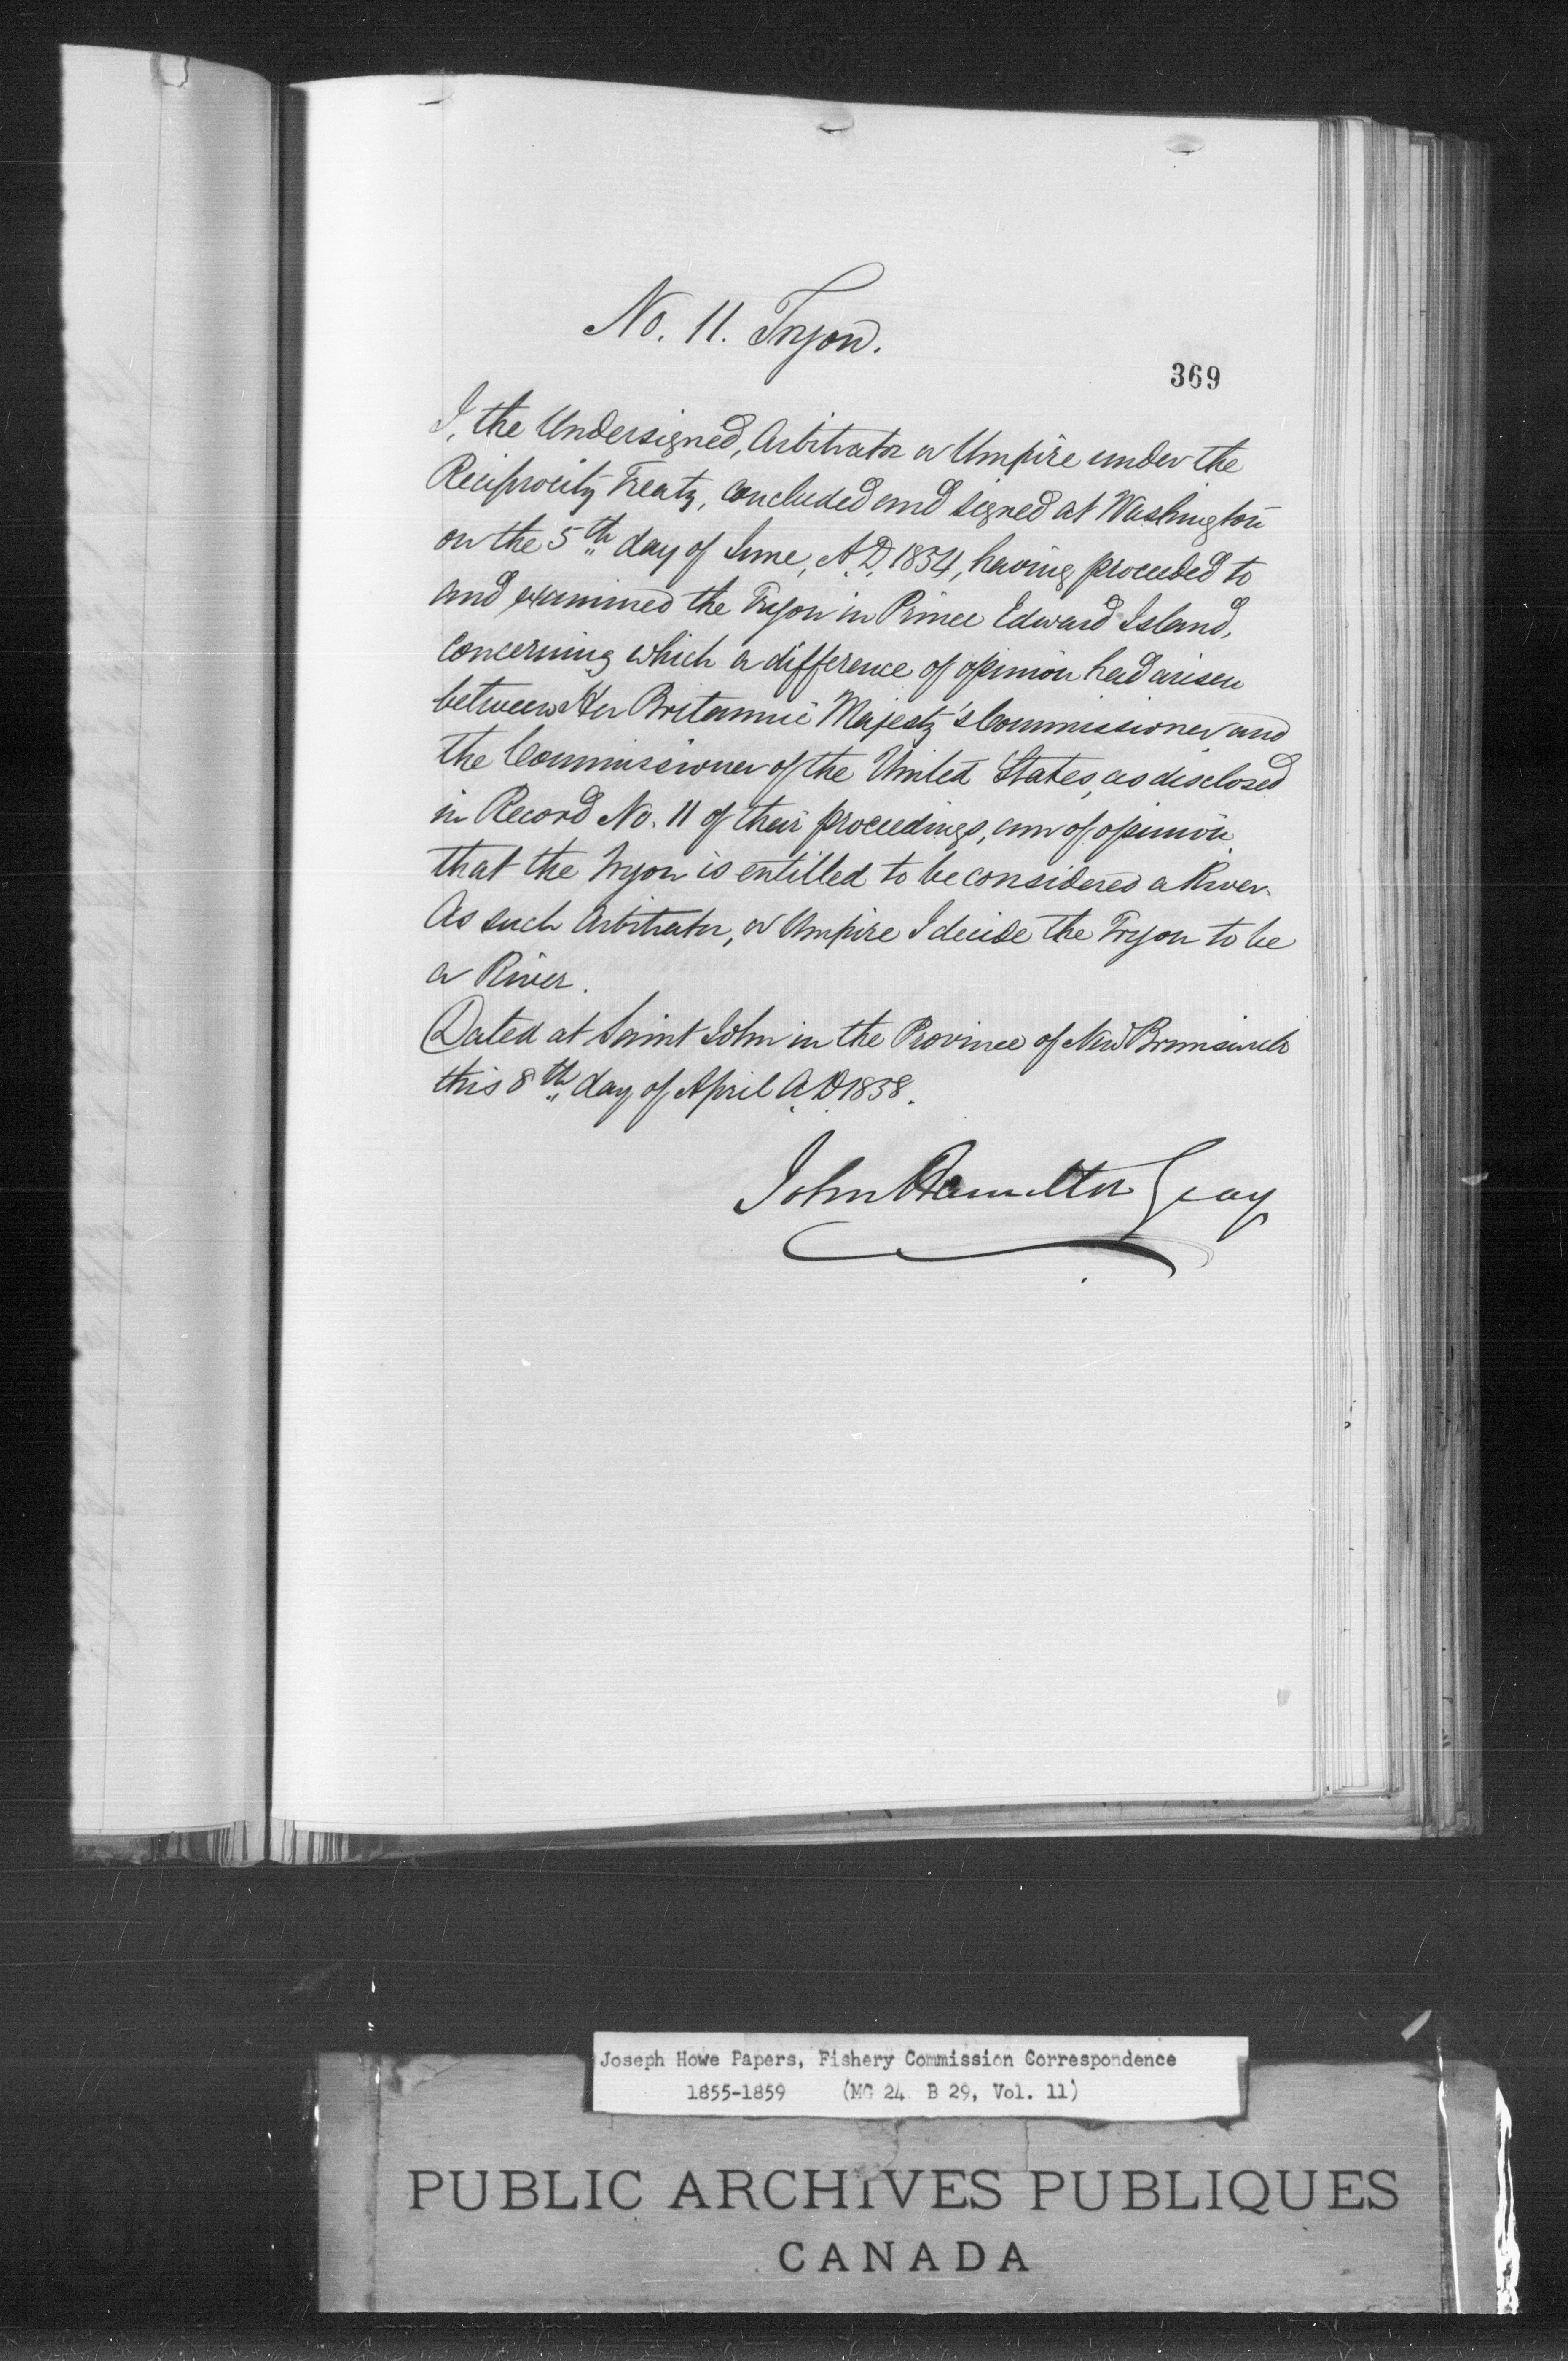 No. 11. Tryon.
369
I, the Undersigned, Arbitrator or Umpire under the
Reciprocity Treaty, concluded and signed at Washington
on the 5th day of June, A.D. 1854, having proceeded to
and examined the Tryon in Prince Edward Island,
concerning which a difference of opinion had arisen
between Her Britannic Majesty's Commissioner and
the Commissioner of the United States, as disclosed
in Record No. 11 of their proceedings, am of opinion
that the Tryon is entitled to be considered a River.
As such Arbitrator, or Umpire I decide the Tryon to be
a River.
Dated at Saint John in the Province of New Brunswick
this 8th day of April A.D. 1858.
John Hamilton Gray
Joseph Howe Papers, Fishery Commission Correspondence
1855-1859 (MG 24 B 29, Vol. 11)
PUBLIC ARCHIVES PUBLIQUES
CANADA